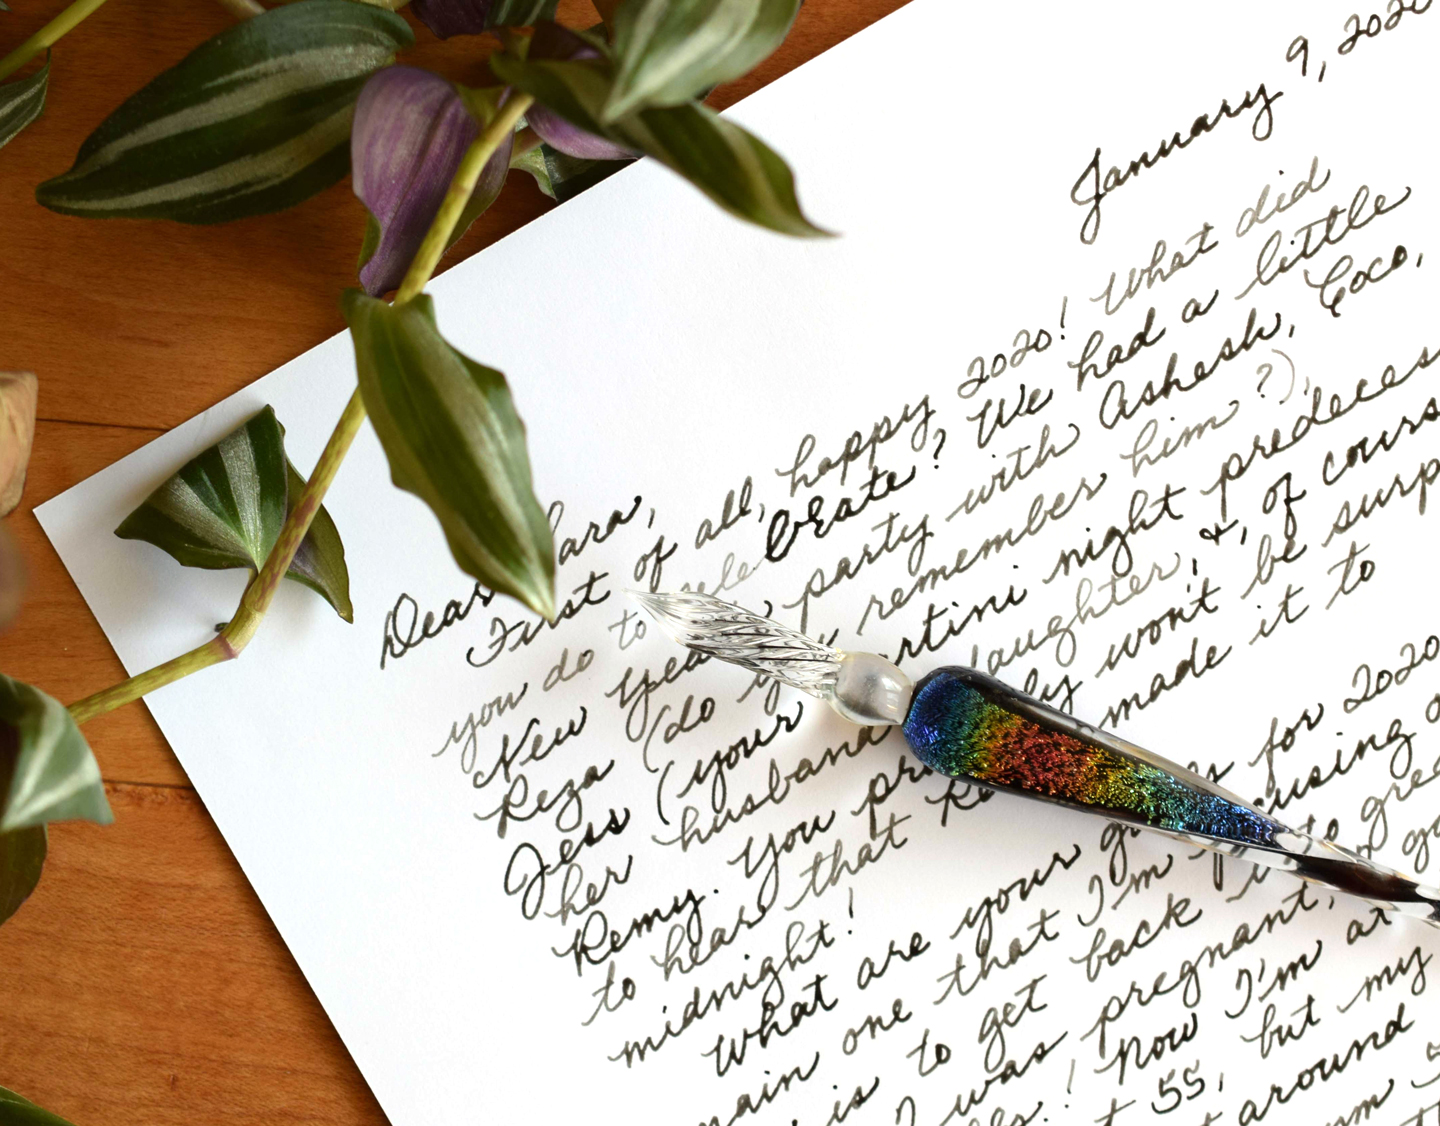 January 9, 2020
Dear ara,
First of all, happy 2020! What did
you do to cele brate? We had a little
New Year party with Ashesh, Coco,
Reza (do y remember him?),
Jess (your artini night predeces
her husband aughter, &, of cours
Remy. You pr ly won't be surp
to hear that Re made it to
midnight!
What are your g s for 2020
main one that I'm focusing o
is to get back into grea
I was pregnant, go
lls! Now I'm at
t 55, but my
t around